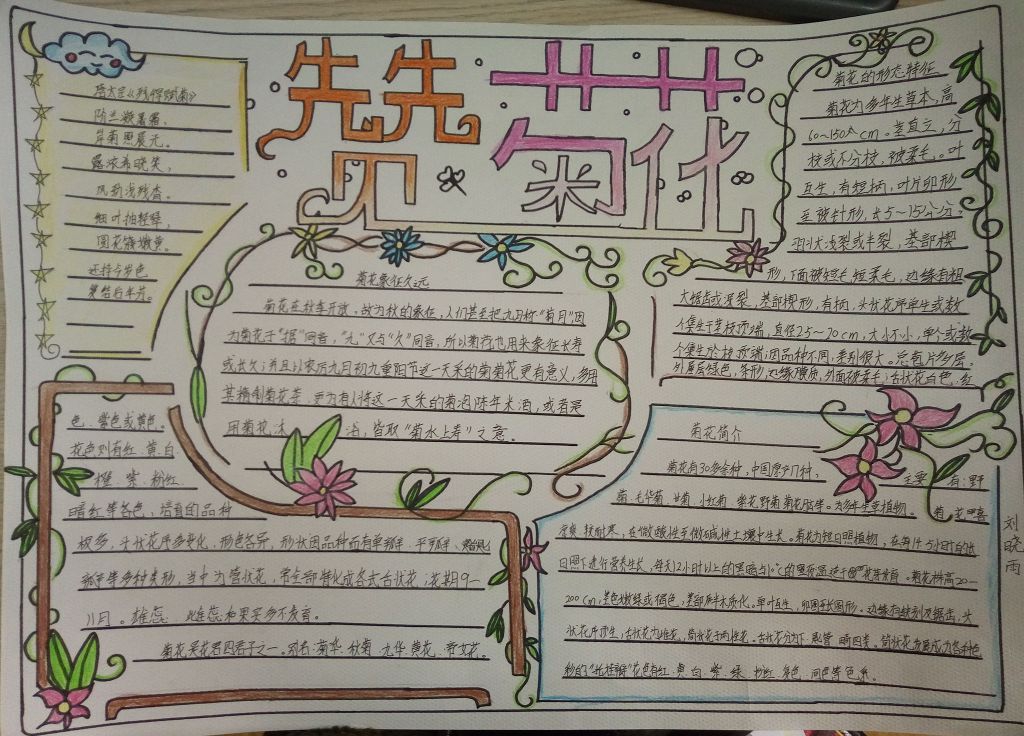 赞菊花
唐太宗《残菊赋菊》
阶兰凝曙霜，
岸菊照晨光。
露浓希晓笑，
风劲浅残香。
细叶抽轻翠，
圆花簇嫩黄。
还持今岁色
复结后年芳。
菊花象征久远
菊花在秋季开放，故为秋的象征，人们甚至把九月称"菊月"，因
为菊花于"据"同音，"九"又与"久"同音，所以菊花也用来象征长寿
或长久；并且以农历九月初九重阳节这一天采的菊花更有意义，多用
其精制菊花茶，更为有人将这一天采的菊泡陈年米酒，或者是
用菊花沐浴，皆取"菊水上寿"之意。
菊花的形态特征
菊花为多年生草本，高
60~150 cm。茎直立，分
枝或不分枝，被柔毛。叶
互生，有短柄，叶片卵形
至披针形，长5~15公分，
羽状浅裂或半裂，基部楔
形，下面被短毛短柔毛，边缘有粗
大锯齿或深裂，基部楔形，有柄，头状花序单生或数
个集生于茎枝顶端，直径2.5~20cm，大小不小，单个或数
个集生于茎枝顶端；因品种不同，差别很大。总苞片多层，
外层绿色，条形，边缘膜质，外面被柔毛；舌状花白色、红
色、紫色或黄色。
花色则有红、黄、白、
橙、紫、粉红、
暗红等各色，培育的品种
极多，头状花序多变化，形色各异，形状因品种而有单瓣、平瓣、匙
瓣等多种类形，当中为管状花，常全部特化成各式舌状花；花期9-
11月。雄蕊、雌蕊和果实多不发育。
菊花是花君四君子之一。别名：菊华、秋菊、九华、黄花、帝女花。
菊花简介
菊花有30多余种，中国原产17种，主要有：野
菊、毛华菊、甘菊、小红菊、紫花野菊、菊花脑等。为多年生草植物。菊花喜
凉爽、较耐寒，在微酸性至微碱性土壤中生长。菊花为短日照植物，在每14.5小时的长
日照下进行营养生长，每天12小时以上的黑暗与10℃的黑夜温适于花芽发育。菊花株高20-
200cm，茎色嫩绿或褐色，基部半木质化。单叶互生，卵圆至长圆形。边缘有缺刻及锯齿，头
状花序顶生，舌状花为雌花，筒状花于两性花。舌状花分为下、匙管、畸四类。筒状花发展成为各种色
彩的"托桂瓣"花色有红、黄、白、紫、绿、粉红、复色、间色等色系。
刘晓雨